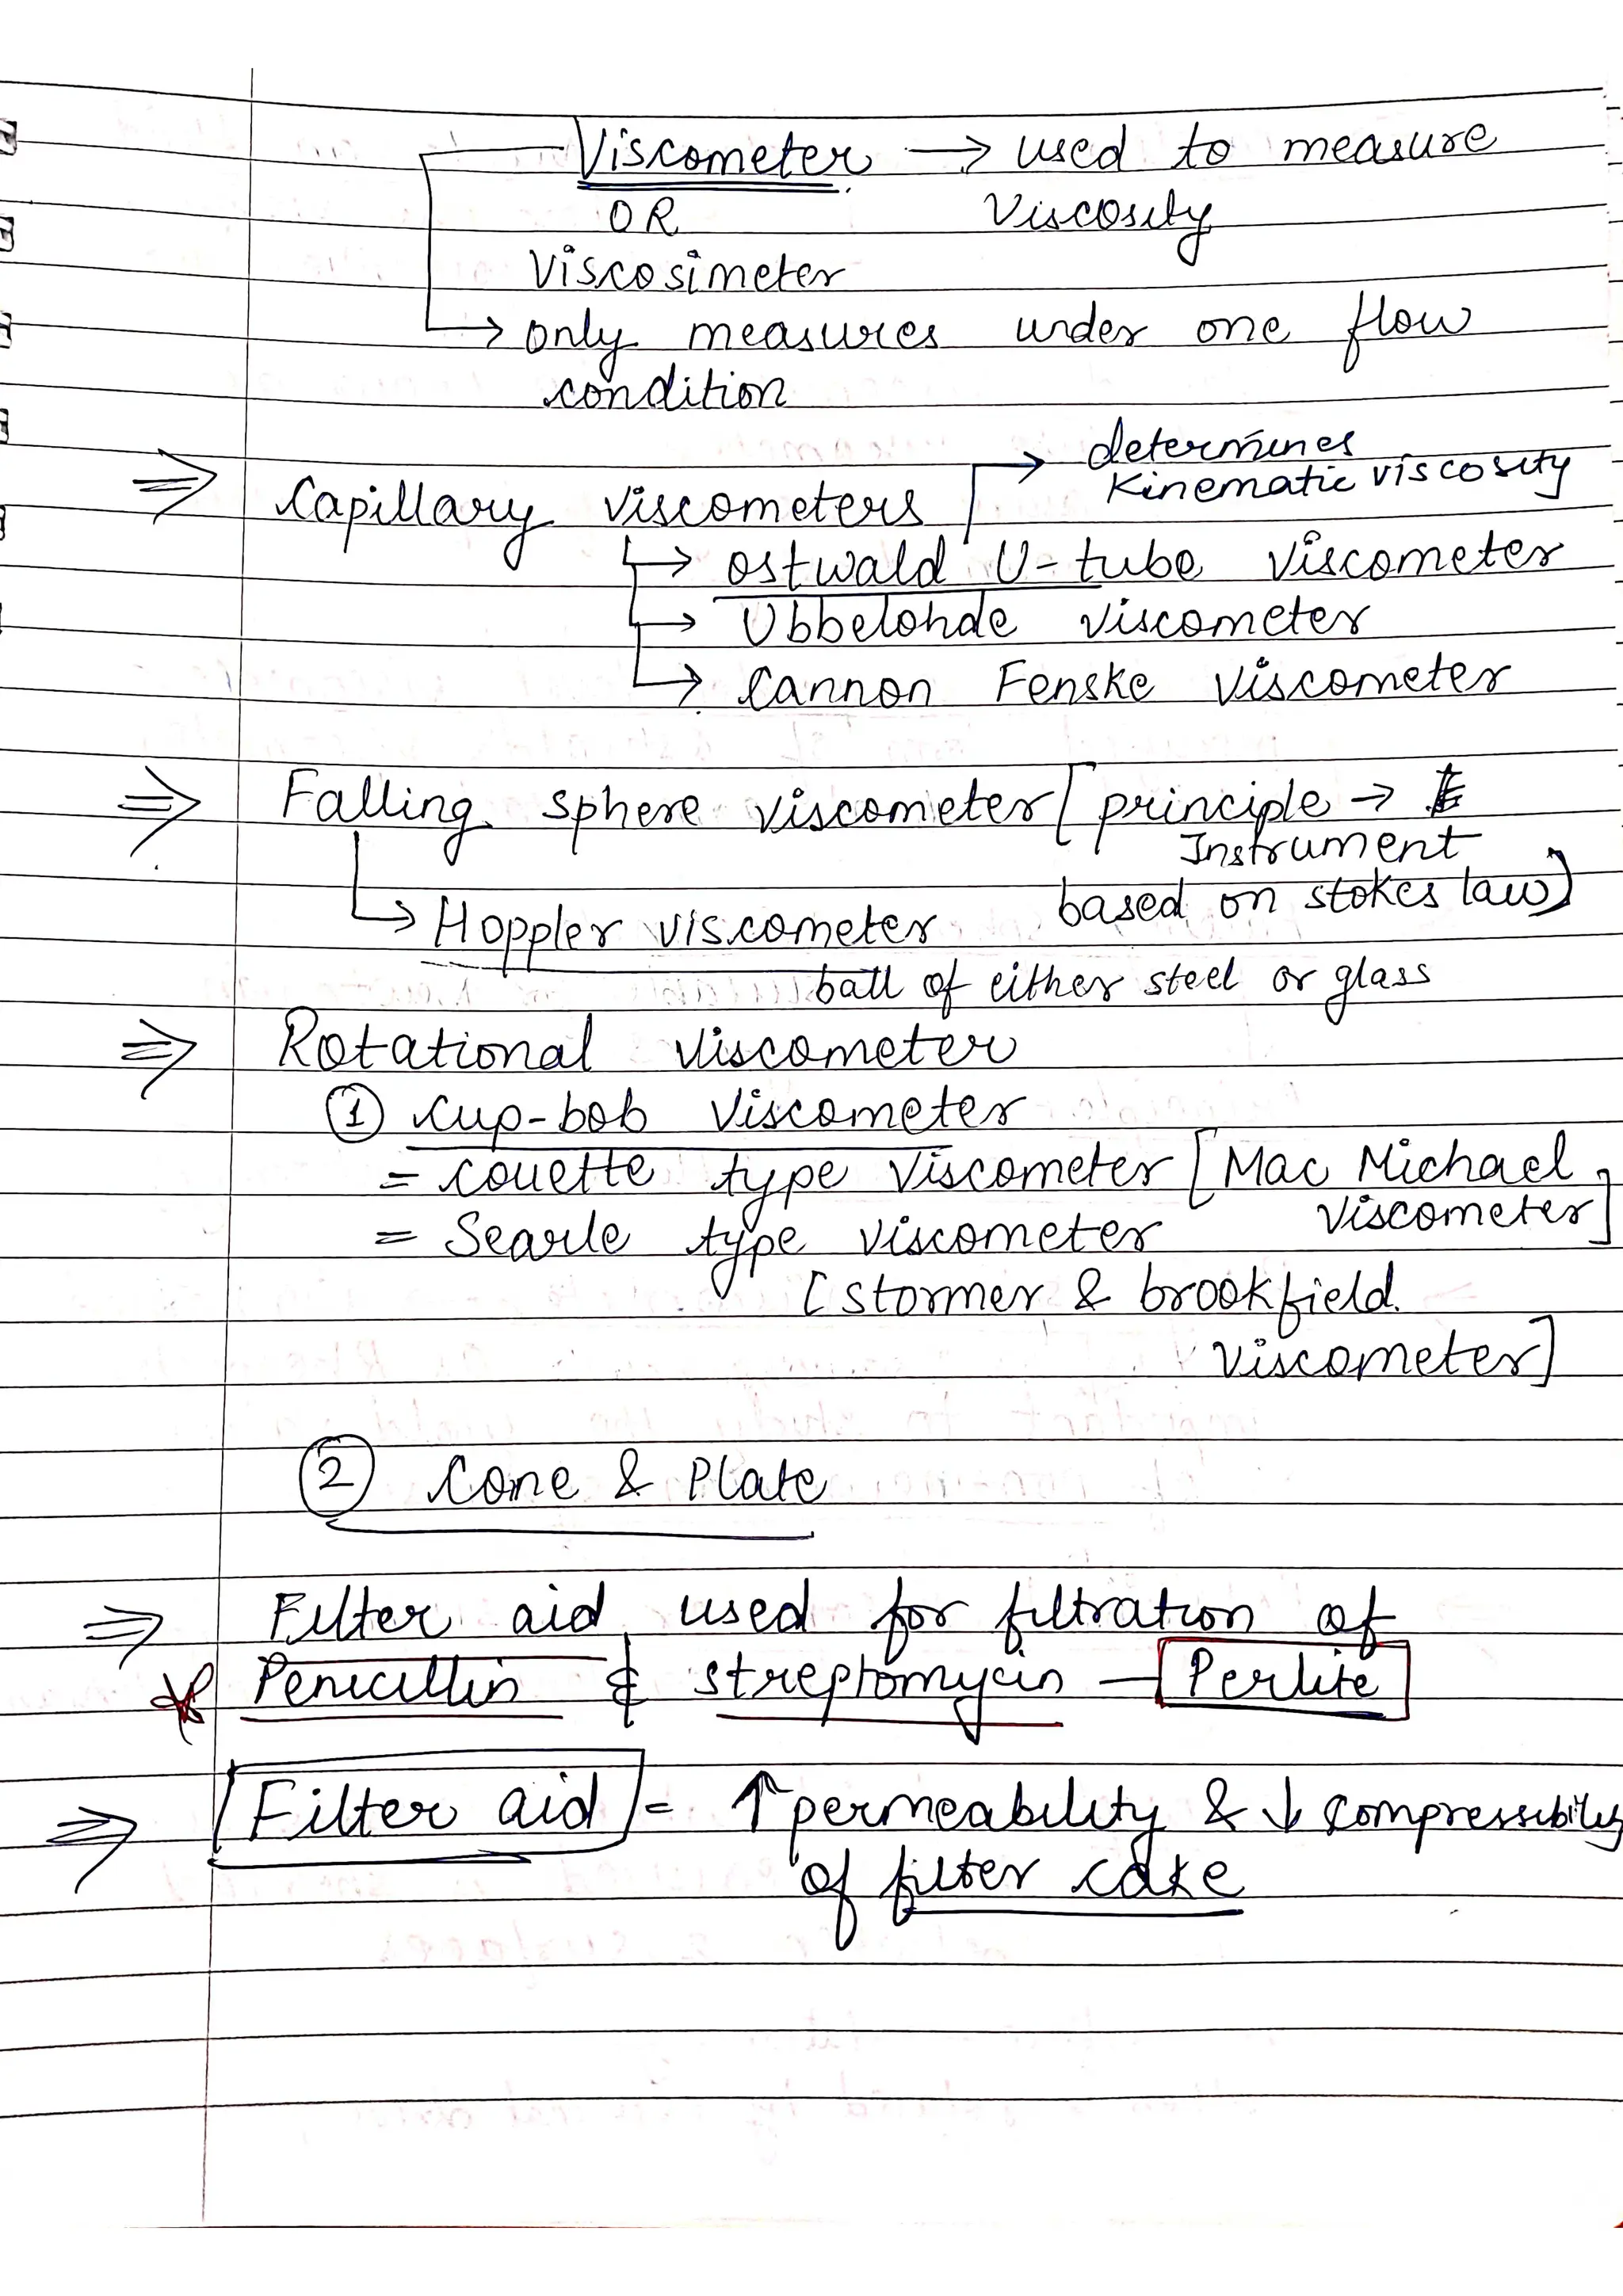 Viscometer → used to measure
OR Viscosity
Viscosimeter
→ only measures under one flow
condition
determines
Kinematic viscosity
⇒ Capillary viscometers
→ ostwald U-tube viscometer
→ Ubbelohde viscometer
→ Cannon Fenske viscometer
⇒ Falling sphere viscometer [principle →
Instrument
based on stokes law)
→ Hoppler viscometer
ball of either steel or glass
⇒ Rotational viscometer
① Cup-bob viscometer
= couette type viscometer [Mac Michael
viscometer]
= Searle type viscometer
[stormer & brookfield.
viscometer]
② Cone & Plate
⇒ Filter aid used for filtration of
Penicillin & streptomycin — Perlite
⇒ Filter aid = ↑ permeability & ↓ compressibility
of filter cake